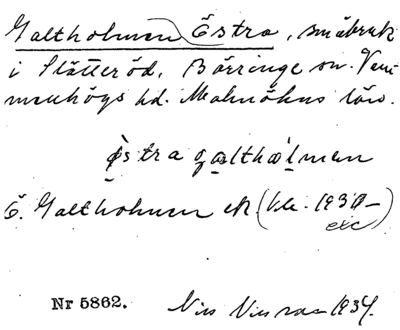 Galtholmen Östra, småbruk
i Slätteröd, Börringe sn. Vem-
menhögs hd. Malmöhus län.
östra galthålmen
Ö. Galtholmen ek (bl. 1930-
exc)
Nr 5862. Nils 1934.